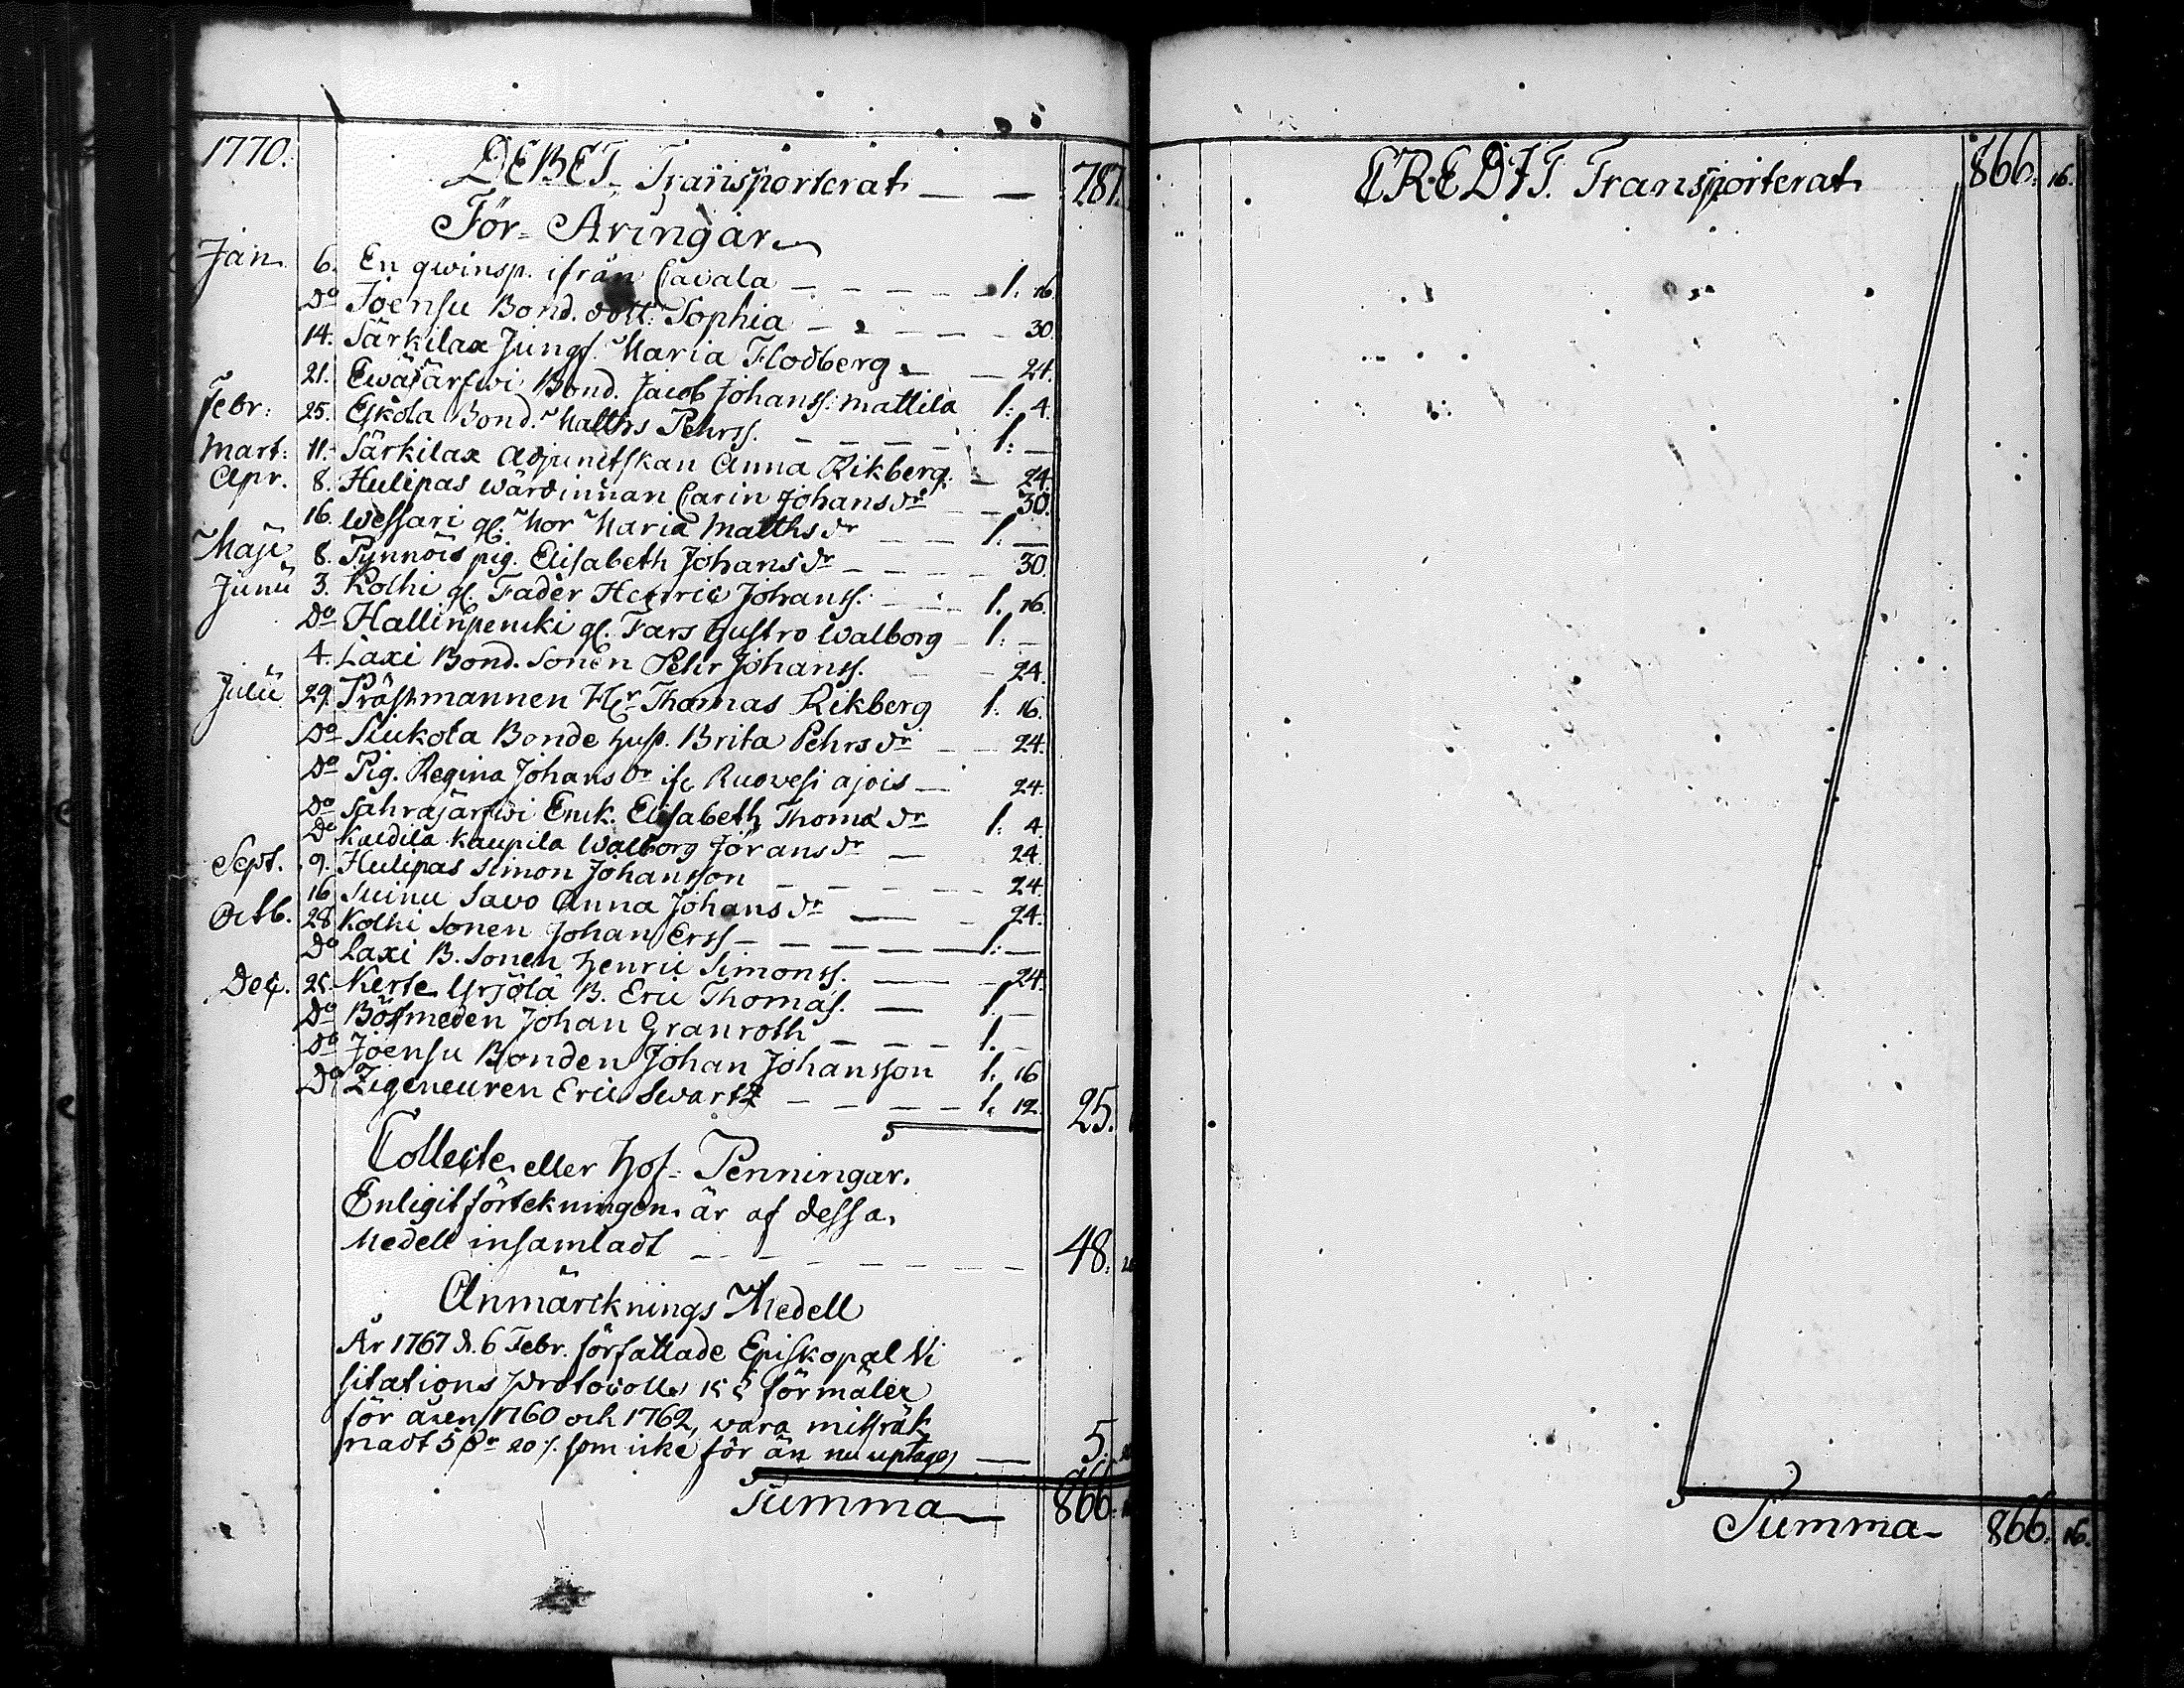 1770. DEBET Transporterat — — 787.
För-Äringar
Jan. 6. En qwinsp. ifrån Cavala — — — — 1: 16.
Do Joensu Bond. dott: Sophia — — — — 30.
14. Särkilax Jungf. Maria Flodberg — — 24.
21. Ewäjärfwi Bond. Jacob Johanss. Mattila 1: 4.
Febr: 25. Eskola Bond. Matths Pehrss. — — — — 1: —
Mart: 11. Särkilax Adjunctskan Anna Rikberg — 24.
Apr. 8. Hulipas wärdinnan Carin Johansdr — — 30.
16. Wessari gl. Mor Maria Matthsdr — — 1: —
Maji 8. Pynnöis pig. Elisabeth Johansdr — — — 30.
Junii 3. Kolhi gl. Fader Henric Johanss. — — 1. 16.
Do Hallinpencki gl. Fars hustro Walborg — 1: —
4. Laxi Bond. Sonen Pehr Johanss. — 24.
Julii 29. Prästmannen Hr Thomas Rikberg 1: 16.
Do Siukola Bonde hust. Brita Pehrsdr — — 24.
Do Pig. Regina Johansdr ifr Ruowesi ajois — 24.
Do Sahrajärfwi Enck. Elisabeth Thomædr 1: 4.
Do Kaldila Kaupila Walborg Jöransdr — 24.
Sept. 9. Hulipas Simon Johansson — — — — 24.
16 Suinu Savo Anna Johansdr — — 24.
Octb. 28 Kolhi Sonen Johan Erss — — — — 1: —
Do Laxi B. Sonen Henric Simonss. — — 24.
Dec. 25. Kerte Yrjölä B. Eric Thomas. — 1. —
Do Bösmeden Johan Granroth — — — 1. —
Do Joensu Bonden Johan Johansson 1: 16
Do Zigeneuren Eric Swartz — — — — 1. 12. 25.
Collecte eller Hof-Penningar.
Enligit förtekningen är af dessa
Medell insamladt — — — — — — 48.
Anmärcknings Medell
År 1767 d. 6 Febr. författade Episkopal Vi
sitations Protocoll 15 § förmäler
för åren 1760 och 1762, wara missräk
nadt 5 Dr 20 /. som icke för än nu uptages — 5.
Summa — 866.
CREDIT. Transporterat 866. 16.
Summa — 866. 16.